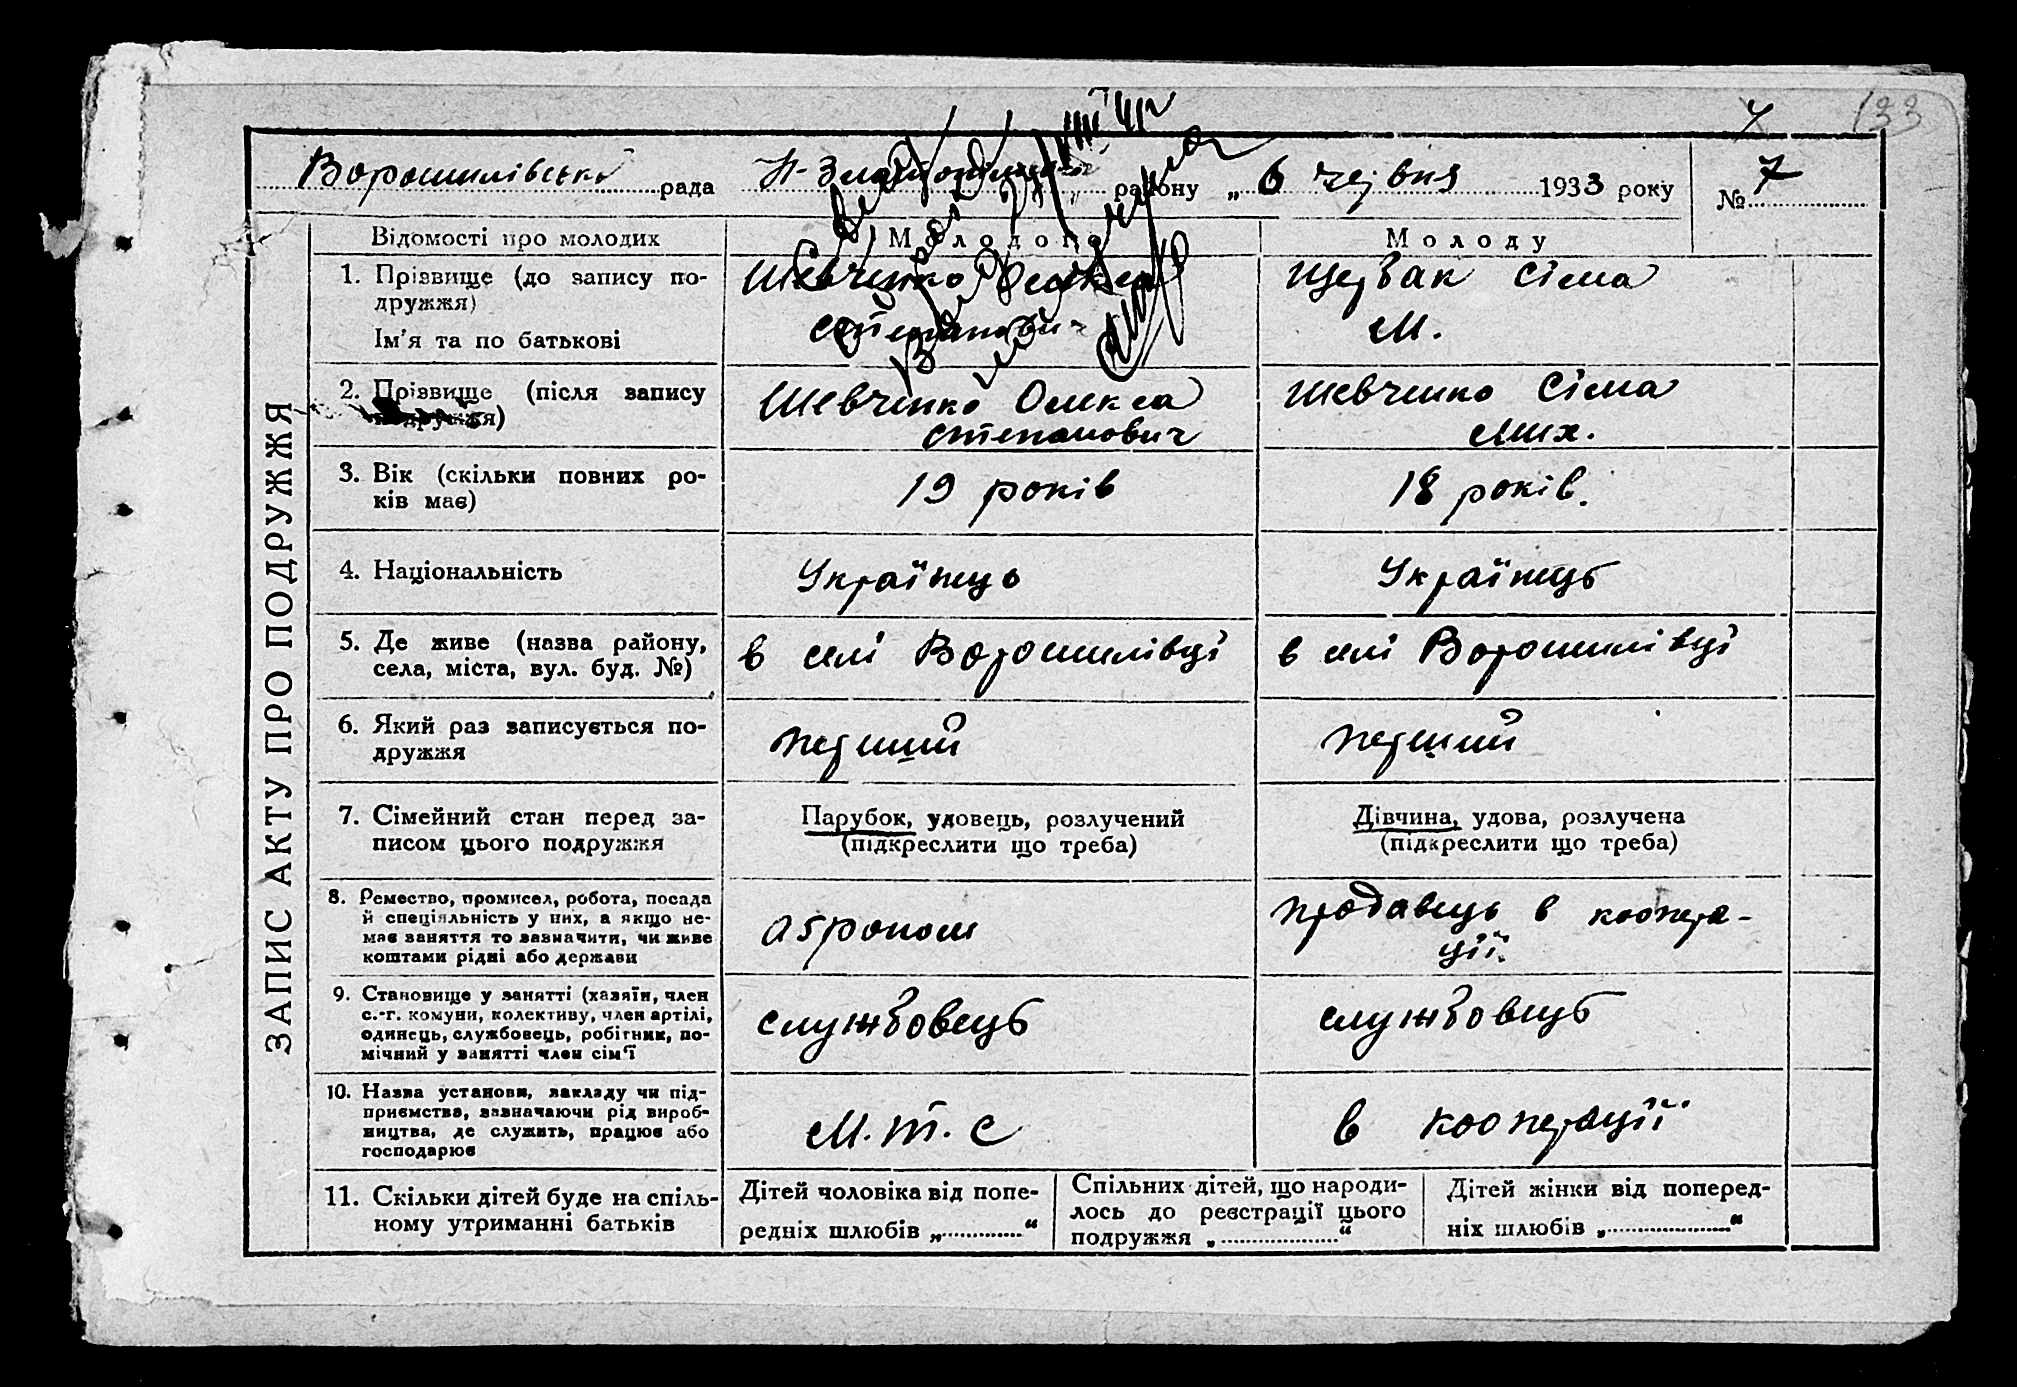 133
Ворошилівська рада Н-Златопільськ району „ 6 червня 1933 року № 7
ЗАПИС АКТУ ПРО ПОДРУЖЖЯ
Відомості про молодих
Молодого
Молоду
1. Прізвище (до запису по-
дружжя)
Ім'я та по батькові
Шевченко Олекса
Степанович
Щербак Сіма
М.
2. Прізвище (після запису
подружжя)
Шевченко Олекса
Степанович
Шевченко Сіма
Мих.
3. Вік (скільки повних ро-
ків має)
19 років
18 років.
4. Національність
Українець
Українець
5. Де живе (назва району,
села, міста, вул. буд. №)
в селі Ворошилівці
в селі Ворошилівці
6. Який раз записується по-
дружжя
перший
перший
7. Сімейний стан перед за-
писом цього подружжя
Парубок, удовець, розлучений
(підкреслити що треба)
Дівчина, удова, розлучена
(підкреслити що треба)
8. Ремество, промисел, робота, посада
й спеціяльність у них, а якщо не-
має заняття то зазначити, чи живе
коштами рідні або держави
агроном
продавець в коопера-
ції.
9. Становище у занятті (хазяїн, член
с.-г. комуни, колективу, член артілі,
одинець, службовець, робітник, по-
мічний у занятті член сім'ї
службовець
службовець
10. Назва установи, закладу чи під-
приємства, зазначаючи рід вироб-
ництва, де служить, працює або
господарює
М.Т.С
в кооперації
11. Скільки дітей буде на спіль-
ному утриманні батьків
Дітей чоловіка від попе-
редніх шлюбів „.............“
Спільних дітей, що народи-
лось до реєстрації цього
подружжя „....................“
Дітей жінки від поперед-
ніх шлюбів „....................“